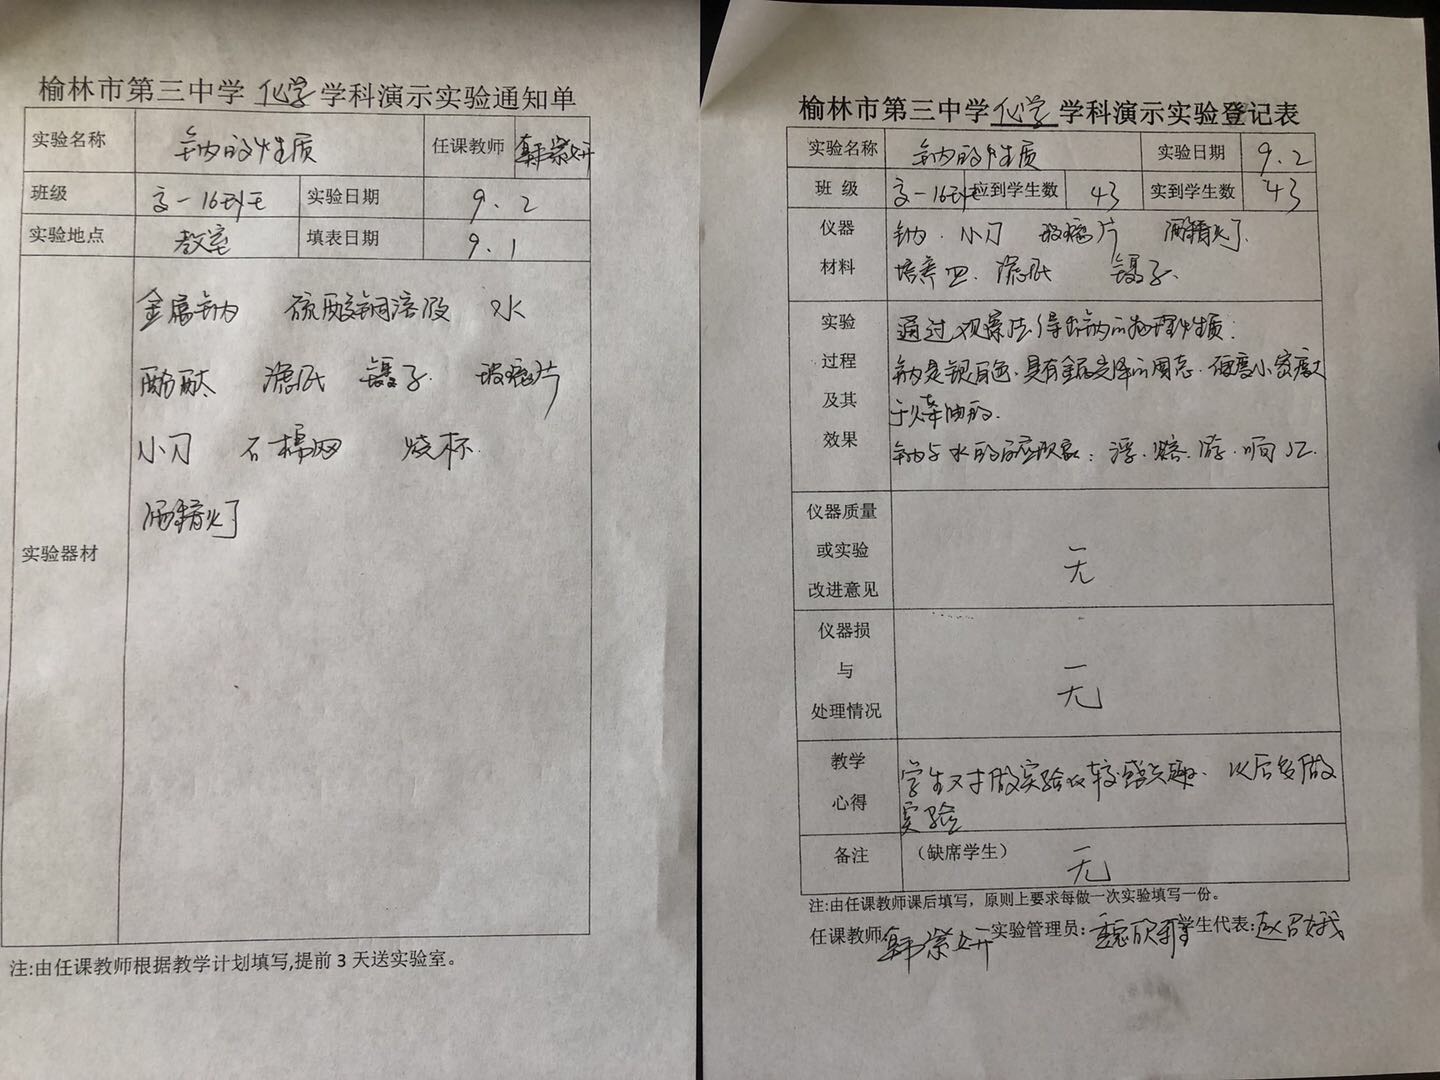 榆林市第三中学 化学 学科演示实验通知单
实验名称 钠的性质 任课教师 韩崇妍
班级 高一16班 实验日期 9.2
实验地点 教室 填表日期 9.1
实验器材
金属钠 硫酸铜溶液 水
酚酞 滤纸 镊子 玻璃片
小刀 石棉网 烧杯
酒精灯
注:由任课教师根据教学计划填写,提前3天送实验室。
榆林市第三中学化学学科演示实验登记表
实验名称 钠的性质 实验日期 9.2
班 级 高一16班 应到学生数 43 实到学生数 43
仪器材料
钠.小刀 玻璃片 酒精灯.
培养皿.滤纸 镊子.
实验过程及其效果
通过观察法得出钠的物理性质:
钠是银白色.具有金属光泽的固态.硬度小密度大
于煤油的.
钠与水的反应现象:浮.熔.游.响.红.
仪器质量或实验改进意见
无
仪器损与处理情况
无
教学心得
学生对做实验比较感兴趣.以后多做
实验
备注 (缺席学生) 无
注:由任课教师课后填写，原则上要求每做一次实验填写一份。
任课教师 韩崇妍 实验管理员: 学生代表: